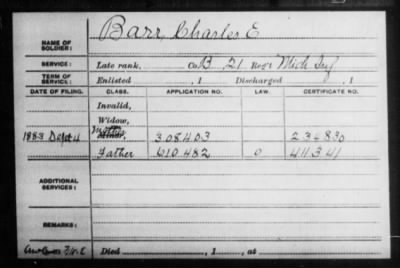 NAME OF SOLDIER: Barr, Charles E
SERVICE: Late rank, Co. B, 21 Reg't Mich Inf
TERM OF SERVICE: Enlisted , 1 Discharged , 1
DATE OF FILING. CLASS. APPLICATION NO. LAW. CERTIFICATE NO.
Invalid,
Widow,
1883 Sept 4 Mother Minor, 308403 234830
Father 610.482 0 411341
ADDITIONAL SERVICES:
REMARKS:
Died , 1 , at